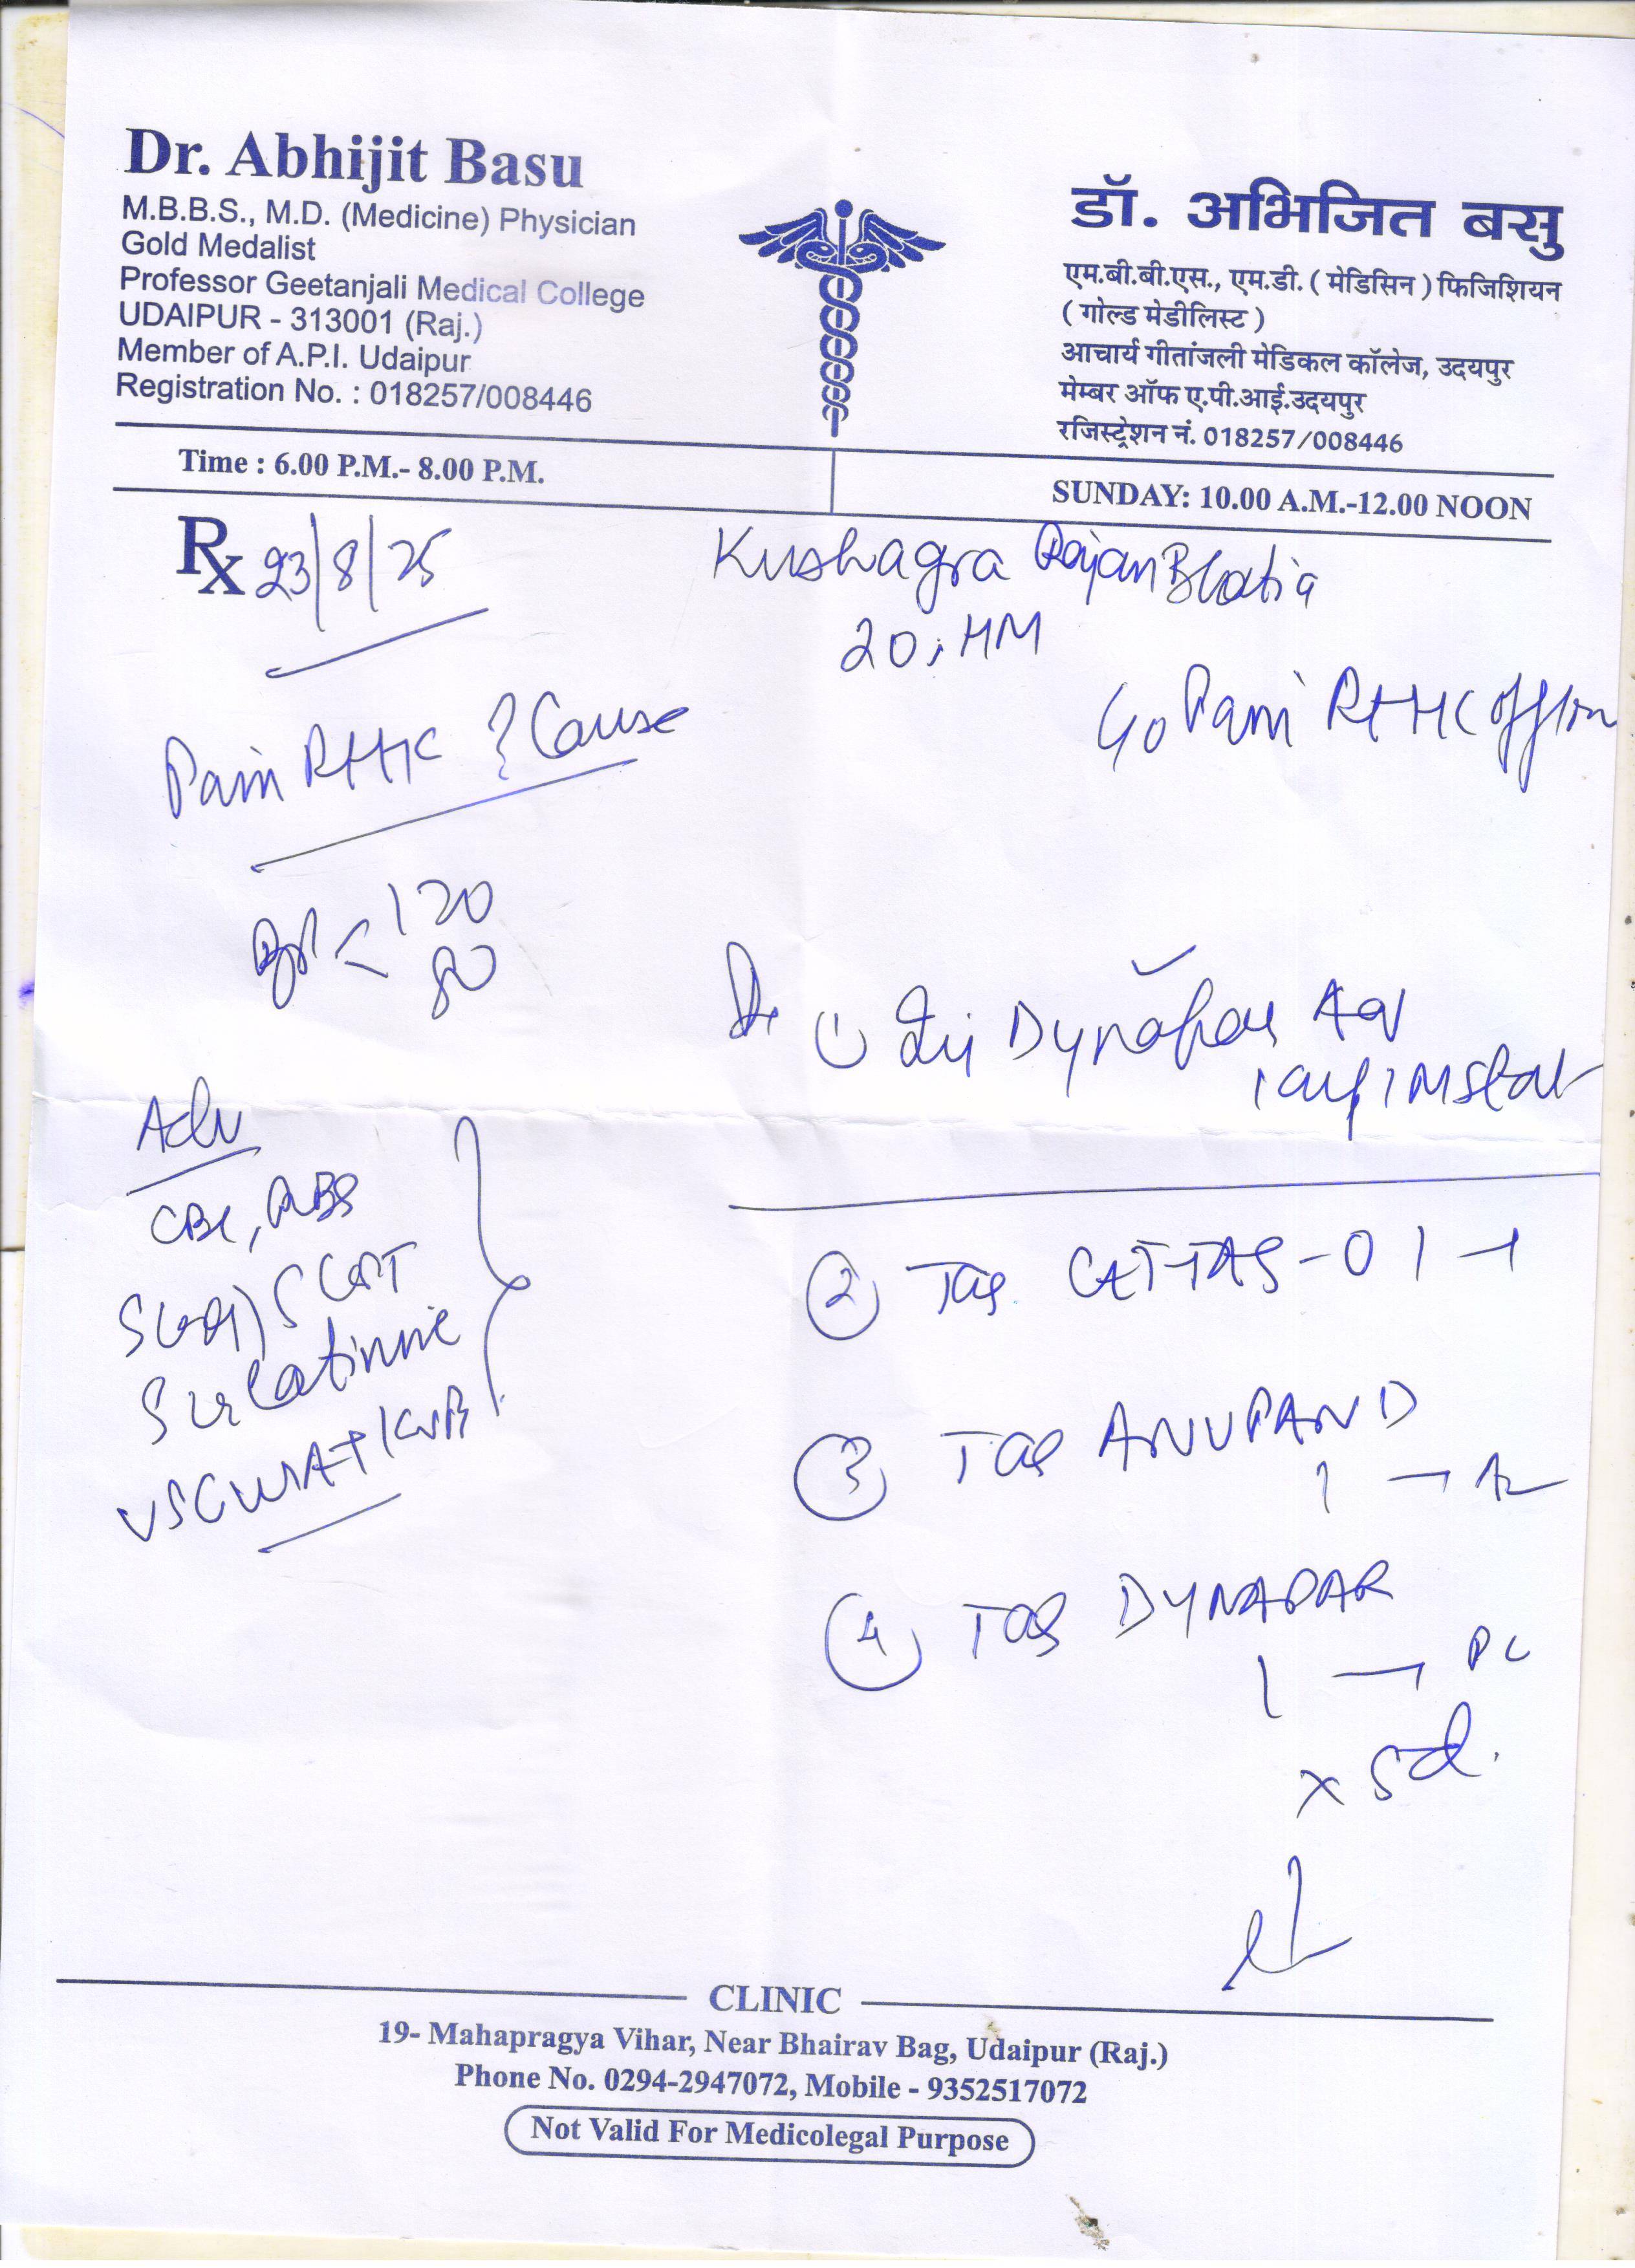 Dr. Abhijit Basu
M.B.B.S., M.D. (Medicine) Physician
Gold Medalist
Professor Geetanjali Medical College
UDAIPUR - 313001 (Raj.)
Member of A.P.I. Udaipur
Registration No. : 018257/008446
डॉ. अभिजित बसु
एम.बी.बी.एस., एम.डी. ( मेडिसिन ) फिजिशियन
( गोल्ड मेडीलिस्ट )
आचार्य गीतांजली मेडिकल कॉलेज, उदयपुर
मेम्बर ऑफ ए.पी.आई.उदयपुर
रजिस्ट्रेशन नं. 018257/008446
Time : 6.00 P.M.- 8.00 P.M.
SUNDAY: 10.00 A.M.-12.00 NOON
Rx 23/8/25
Kushagra Rajan Bhatia
20
Pain ? Cause
Pain
BP < 120
80
① Inj Dynapar AQ
1 amp IM stat
Adv
CBC, RBS
SGPT
S Creatinine
② Tab
③ Tab
④ TAB DYNAPAR
1 → PC
x 5d.
CLINIC
19- Mahapragya Vihar, Near Bhairav Bag, Udaipur (Raj.)
Phone No. 0294-2947072, Mobile - 9352517072
Not Valid For Medicolegal Purpose